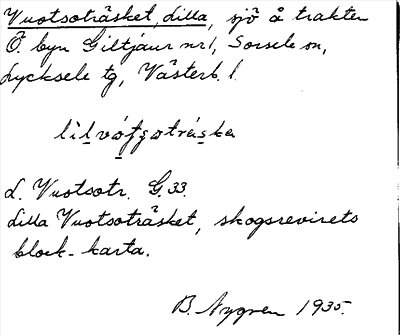 Vuotsoträsket, Lilla, sjö å trakten
Ö. byn Giltjaur nr 1, Sorsele sn,
Lycksele tg, Västerb. l.
lilvófgotráska
L. Vuotsotr. G. 33.
Lilla Vuotsoträsket, skogsrevirets
block-karta.
B. Nygren 1935.